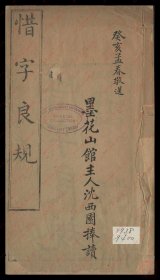 癸亥孟春敬送
墨花山館主人沈西園捧讀
惜字良規